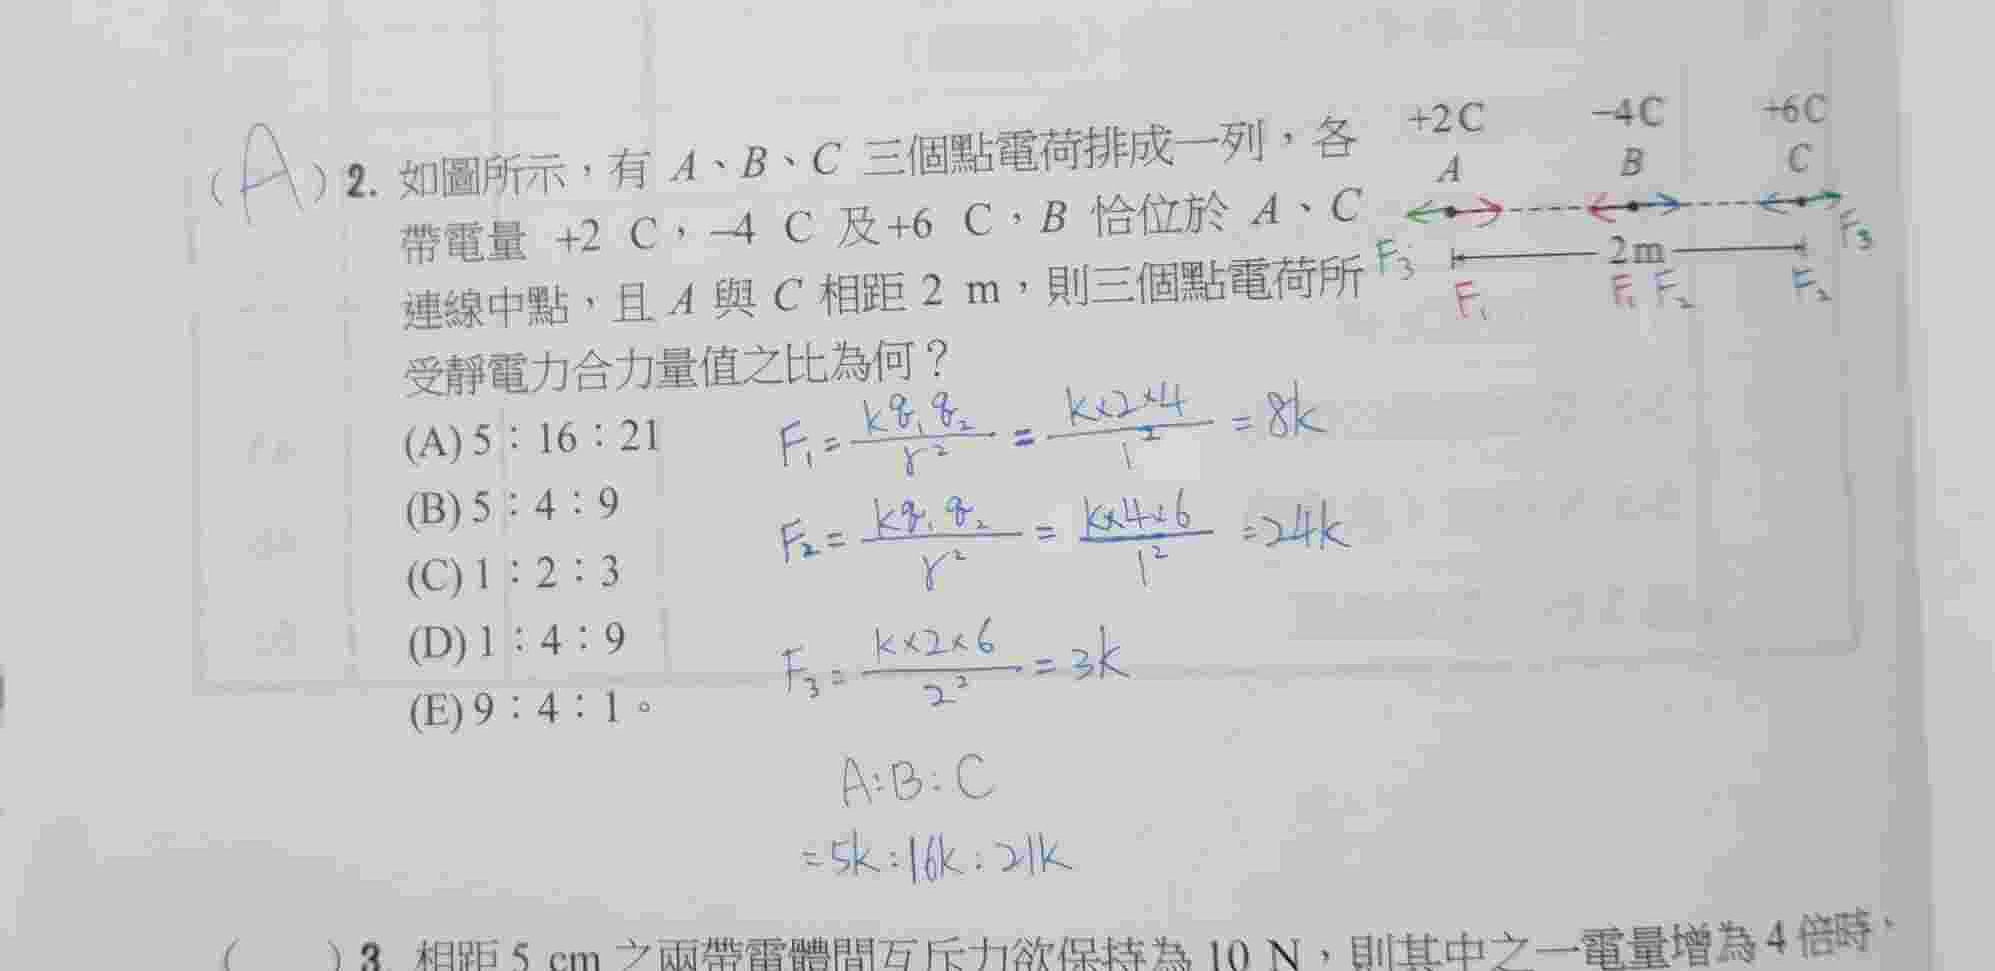 +2C −4C +6C
A B C
F₃ F₃
2m
F₁ F₁ F₂ F₂
(A) 2. 如圖所示，有 A、B、C 三個點電荷排成一列，各
帶電量 +2 C，−4 C 及+6 C，B 恰位於 A、C
連線中點，且 A 與 C 相距 2 m，則三個點電荷所
受靜電力合力量值之比為何？
(A) 5：16：21
(B) 5：4：9
(C) 1：2：3
(D) 1：4：9
(E) 9：4：1。
F₁ = kq₁q₂/r² = k×2×4/1² = 8k
F₂ = kq₁q₂/r² = k×4×6/1² = 24k
F₃ = k×2×6/2² = 3k
A:B:C
= 5k:16k:21k
( ) 3. 相距 5 cm 之兩帶電體間互斥力欲保持為 10 N，則其中之一電量增為 4 倍時，